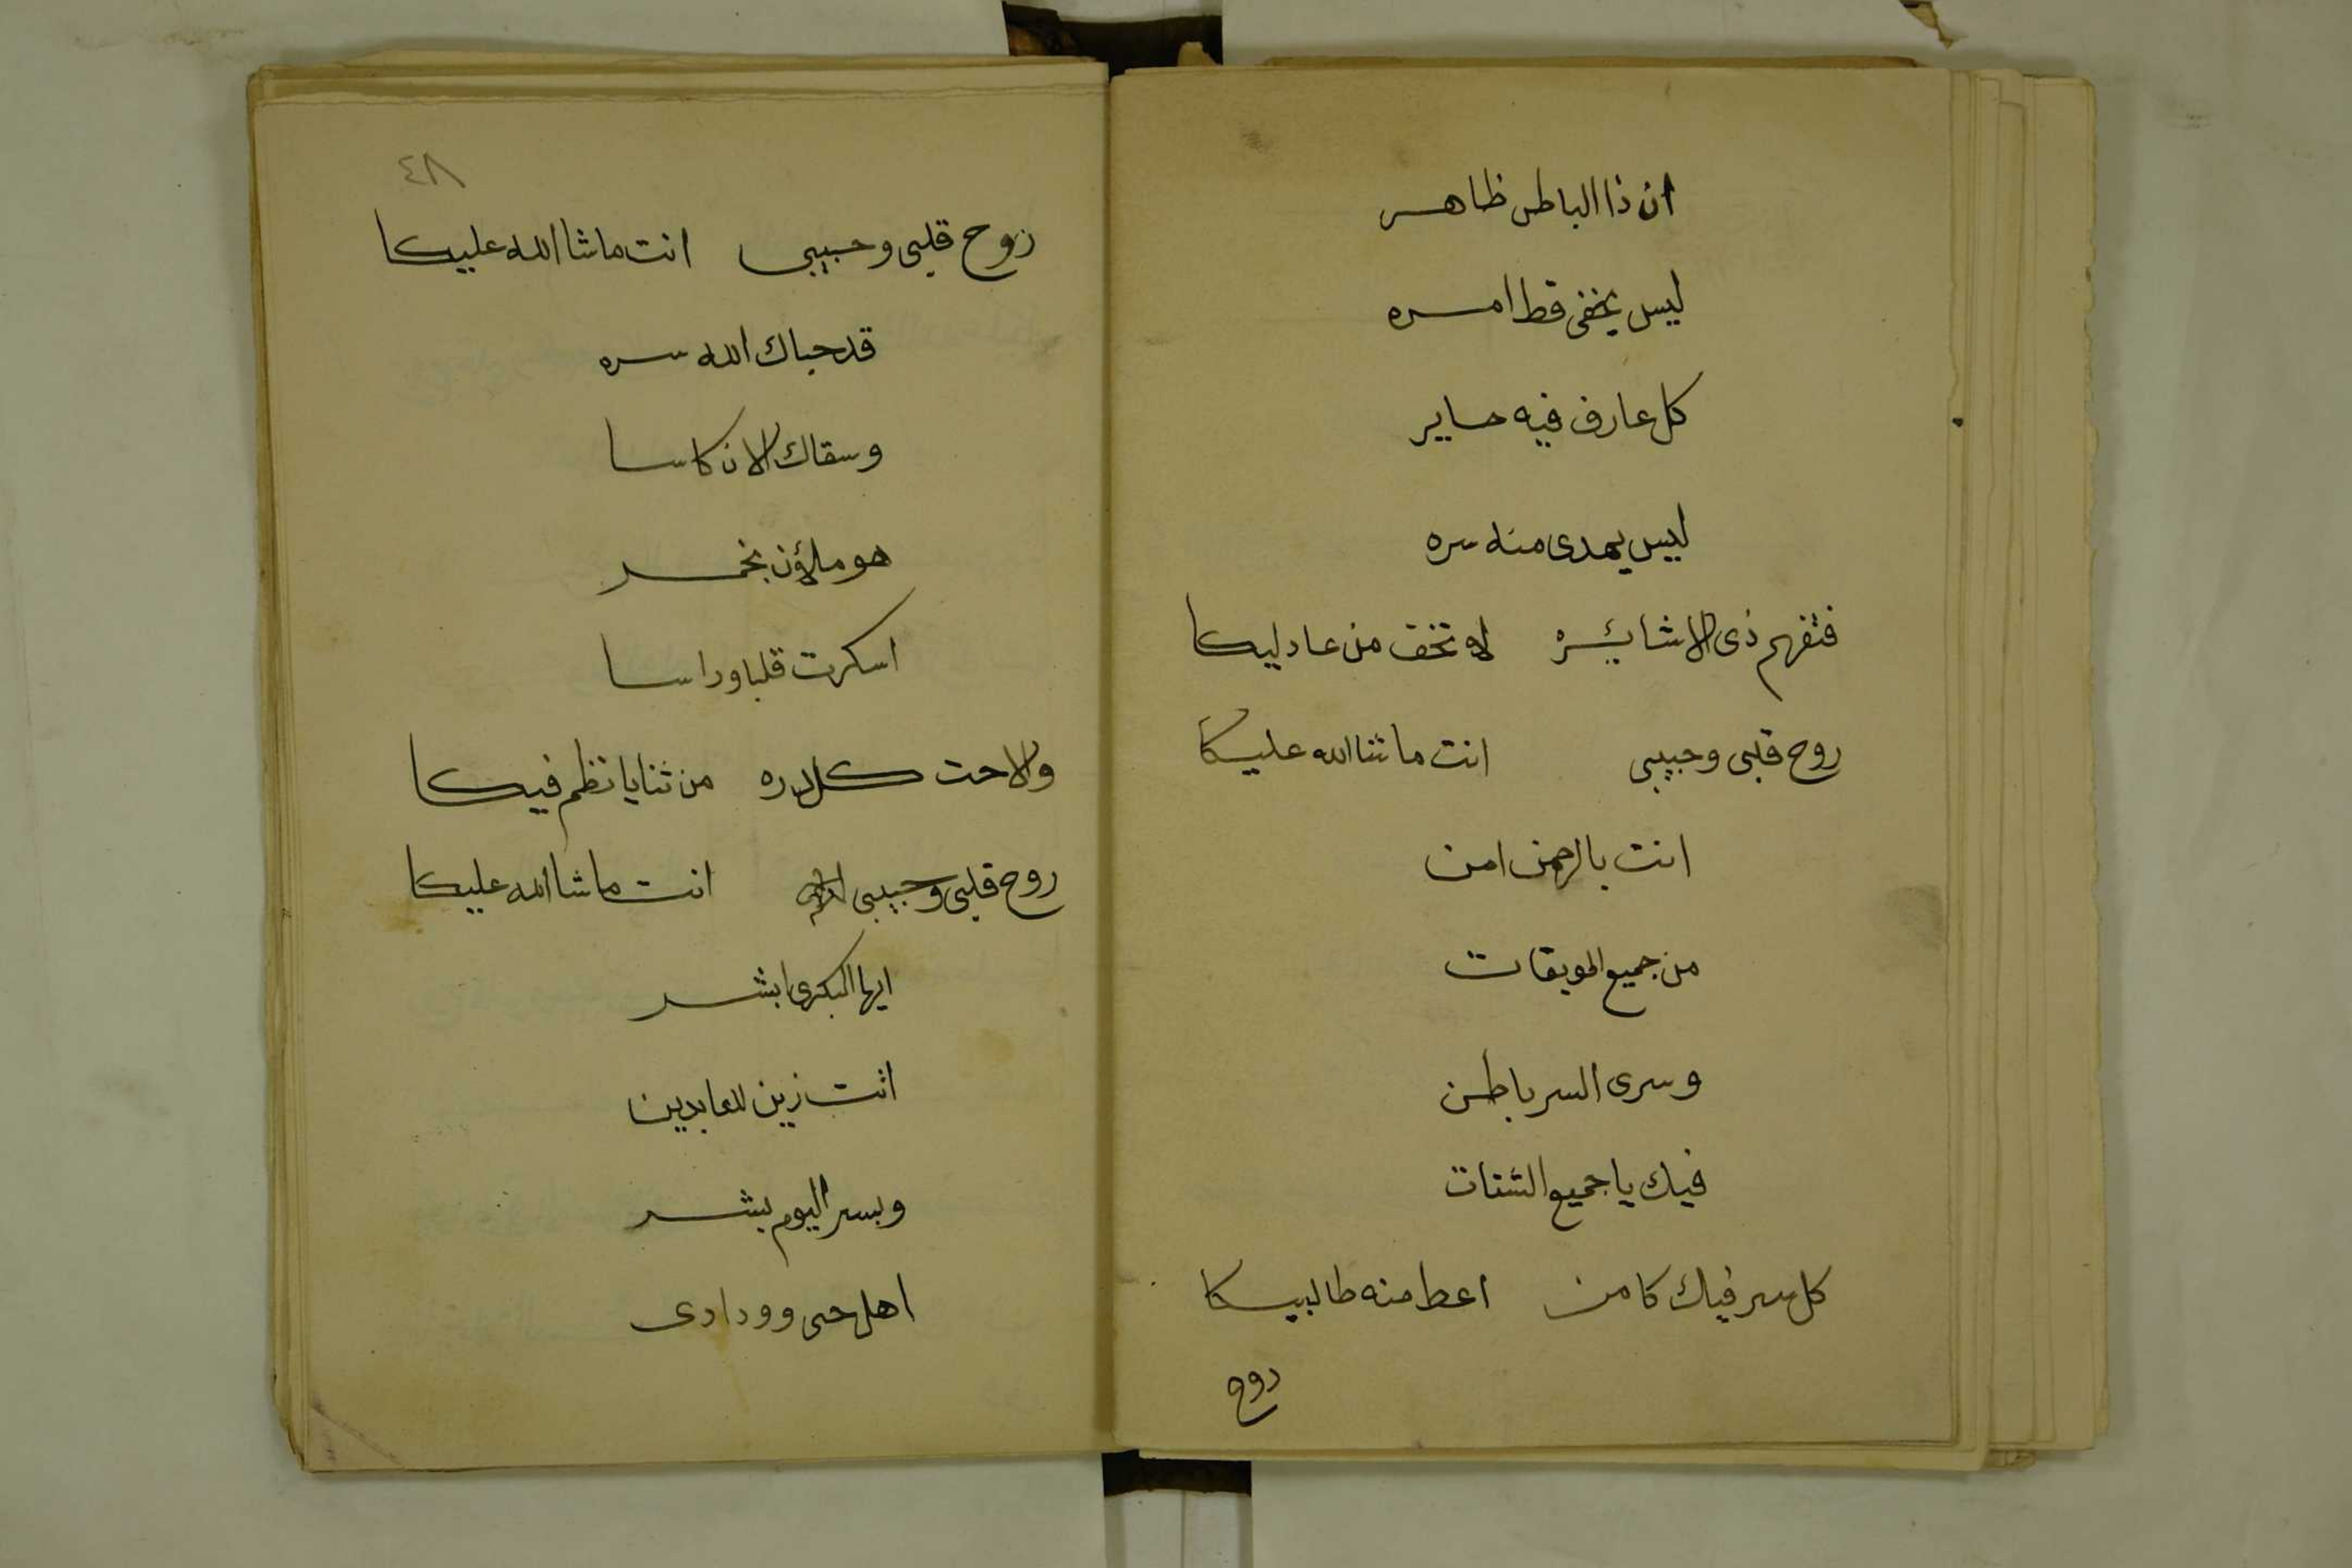 ان ذا الباطن ظاهر
ليس يخفى قط امره
كل عارف فيه حاير
ليس يهدى منه سره
فتفهم ذى الاشائره لا تخف من عادليكا
روح قلبى وحبيبى انت ماشا الله عليكا
انت بالرحمن امن
من جميع الموبقات
وسرى السر باطن
فيك يا جميع الشتات
كل سر فيك كامن اعط منه طالبيكا
روح
٤٨
روح قلبى وحبيبى انت ماشا الله عليكا
قد حباك الله سره
وسقاك الان كاسا
هو ملاؤن بخمر
اسكرت قلبا وراسا
والاحت كل دره من ثنايا نظم فيكا
روح قلبى وحبيبى انت ماشا الله عليكا
ايها البكرى ابشر
انت زين للعابدين
وبسر اليوم بشر
اهل حى وودادى